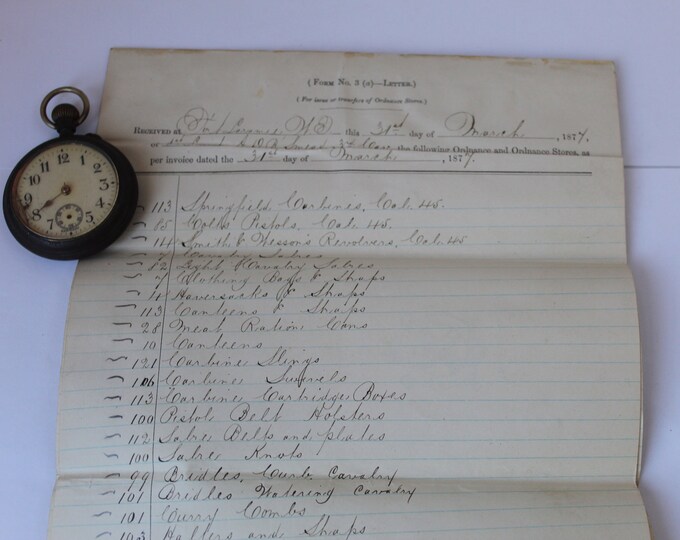 (Form No. 3 (a)—Letter.)
(For issue or transfer of Ordnance Stores.)
Received at Ft. Laramie, W.T. this 31st day of March, 1877.
of 1st Lieut. A. D. B. Smead, 3d Cav. the following Ordnance and Ordnance Stores, as
per invoice dated the 31st day of March, 1877.
113 Springfield Carbines, Cal. 45.
85 Colts Pistols, Cal. 45.
14 Smith & Wessons Revolvers, Cal. 45
7 Cavalry Sabres
82 Light Cavalry Sabres
7 Clothing Bags & Shaps
4 Haversacks & Shaps
113 Canteens & Shaps
28 Meat Ration Cans
10 Canteens
121 Carbine Slings
106 Carbine Swivels
113 Carbine Cartridge Boxes
100 Pistol Belt Holsters
112 Sabre Belts and plates
100 Sabre Knots
99 Bridles, Curb. Cavalry
101 Bridles Watering Cavalry
101 Curry Combs
103 Halters and Shaps
12
1
2
3
4
5
6
7
8
9
10
11